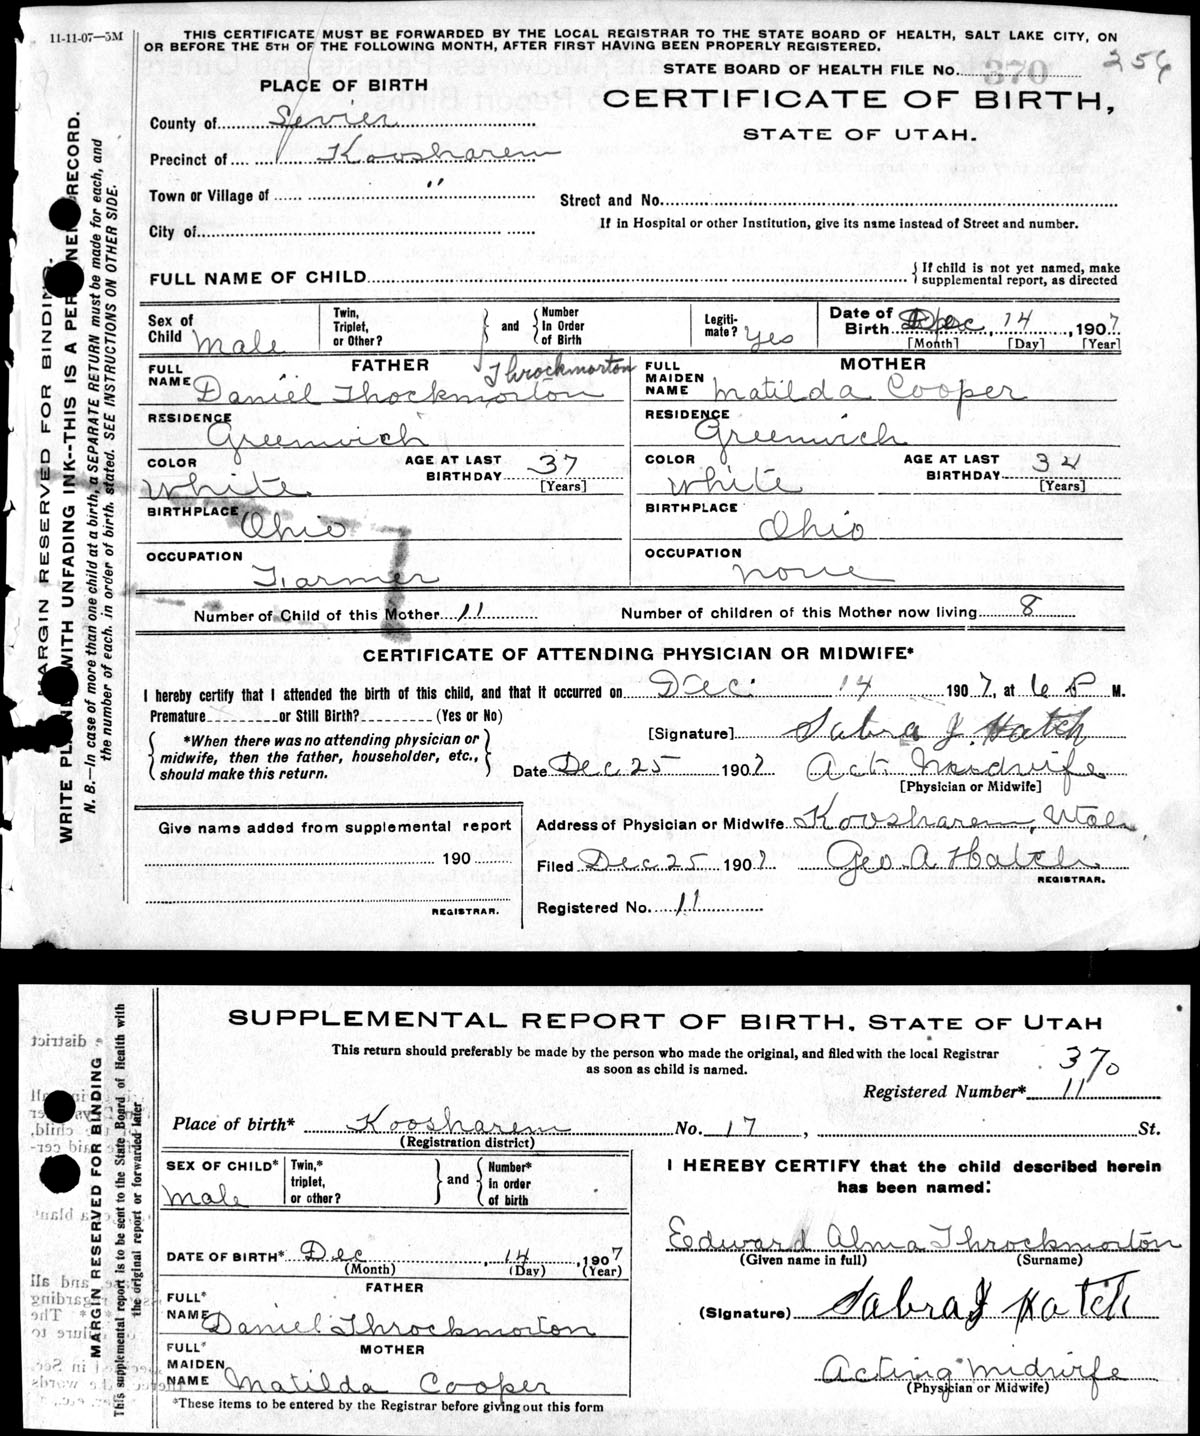 11-11-07—5M
THIS CERTIFICATE MUST BE FORWARDED BY THE LOCAL REGISTRAR TO THE STATE BOARD OF HEALTH, SALT LAKE CITY, ON
OR BEFORE THE 5TH OF THE FOLLOWING MONTH, AFTER FIRST HAVING BEEN PROPERLY REGISTERED.
STATE BOARD OF HEALTH FILE No. 370
256
PLACE OF BIRTH
CERTIFICATE OF BIRTH,
STATE OF UTAH.
County of Sevier
Precinct of Koosharem
Town or Village of "
Street and No.
If in Hospital or other Institution, give its name instead of Street and number.
City of
FULL NAME OF CHILD
If child is not yet named, make
supplemental report, as directed
Sex of Child Male
Twin, Triplet, or Other?
and
Number In Order of Birth
Legiti-mate? Yes
Date of Birth Dec, 14, 1907
[Month] [Day] [Year]
FATHER
FULL NAME Daniel Thockmorton Throckmorton
MOTHER
FULL MAIDEN NAME Matilda Cooper
RESIDENCE Greenwich
RESIDENCE Greenwich
COLOR White
AGE AT LAST BIRTHDAY 37 [Years]
COLOR White
AGE AT LAST BIRTHDAY 34 [Years]
BIRTHPLACE Ohio
BIRTHPLACE Ohio
OCCUPATION Farmer
OCCUPATION none
Number of Child of this Mother 11
Number of children of this Mother now living 8
CERTIFICATE OF ATTENDING PHYSICIAN OR MIDWIFE*
I hereby certify that I attended the birth of this child, and that it occurred on Dec. 14 1907, at 6 P M.
Premature or Still Birth? (Yes or No)
*When there was no attending physician or
midwife, then the father, householder, etc.,
should make this return.
[Signature] Sabra J. Hatch
Date Dec 25 1907
Act. Midwife
[Physician or Midwife]
Give name added from supplemental report
190
REGISTRAR.
Address of Physician or Midwife Koosharem, Utah
Filed Dec 25 1907 Geo A Hatch
REGISTRAR.
Registered No. 11
MARGIN RESERVED FOR BINDING.
N. B.—In case of more than one child at a birth, a SEPARATE RETURN must be made for each, and
the number of each, in order of birth, stated. SEE INSTRUCTIONS ON OTHER SIDE.
SUPPLEMENTAL REPORT OF BIRTH, STATE OF UTAH
This return should preferably be made by the person who made the original, and filed with the local Registrar
as soon as child is named.
370
Registered Number* 11
Place of birth* Koosharem No. 17, St.
(Registration district)
SEX OF CHILD* Male
Twin,* triplet, or other?
and
Number* in order of birth
DATE OF BIRTH* Dec, 14, 1907
(Month) (Day) (Year)
FATHER
FULL* NAME Daniel Throckmorton
MOTHER
FULL* MAIDEN NAME Matilda Cooper
*These items to be entered by the Registrar before giving out this form
I HEREBY CERTIFY that the child described herein
has been named:
Edward Alma Throckmorton
(Given name in full) (Surname)
(Signature) Sabra J Hatch
Acting Midwife
(Physician or Midwife)
MARGIN RESERVED FOR BINDING
This supplemental report is to be sent to the State Board of Health with
the original report or forwarded later